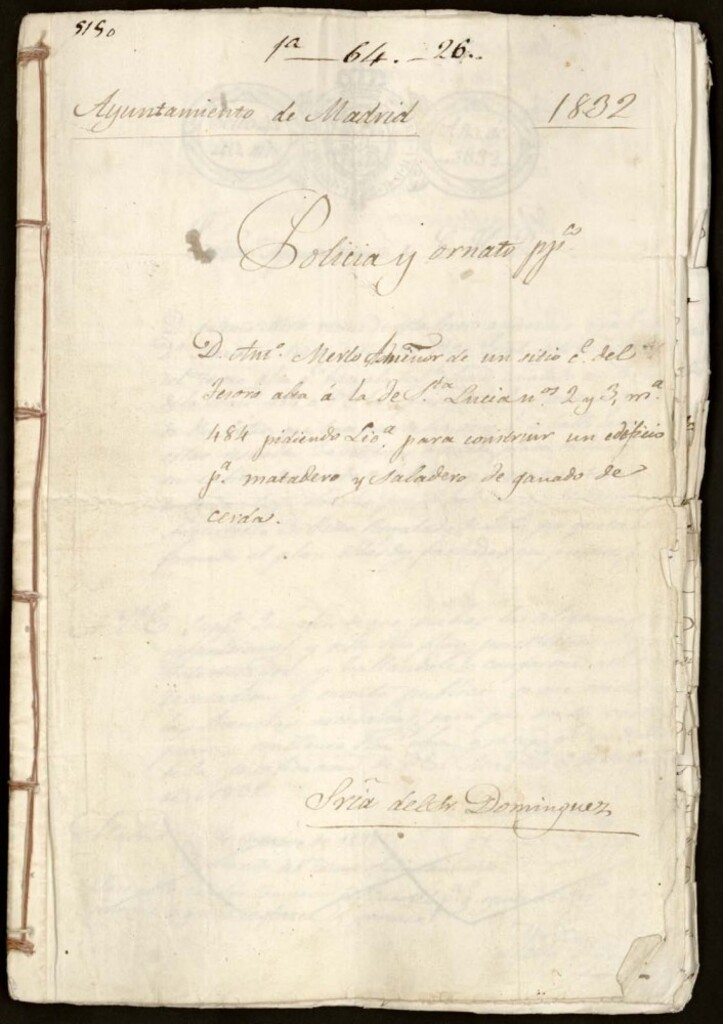 5150
1ª — 64. — 26..
Ayuntamiento de Madrid 1832
Policia y ornato ppco
D. Anto. Merlo dueñor de un sitio ce. del
Tesoro alta á la de Sta. Lucia nos 2 y 3, mª.
484 pidiendo Lica. para construir un edificio
pª. matadero y saladero de ganado de
cerda.
Sria del Sr. Dominguez